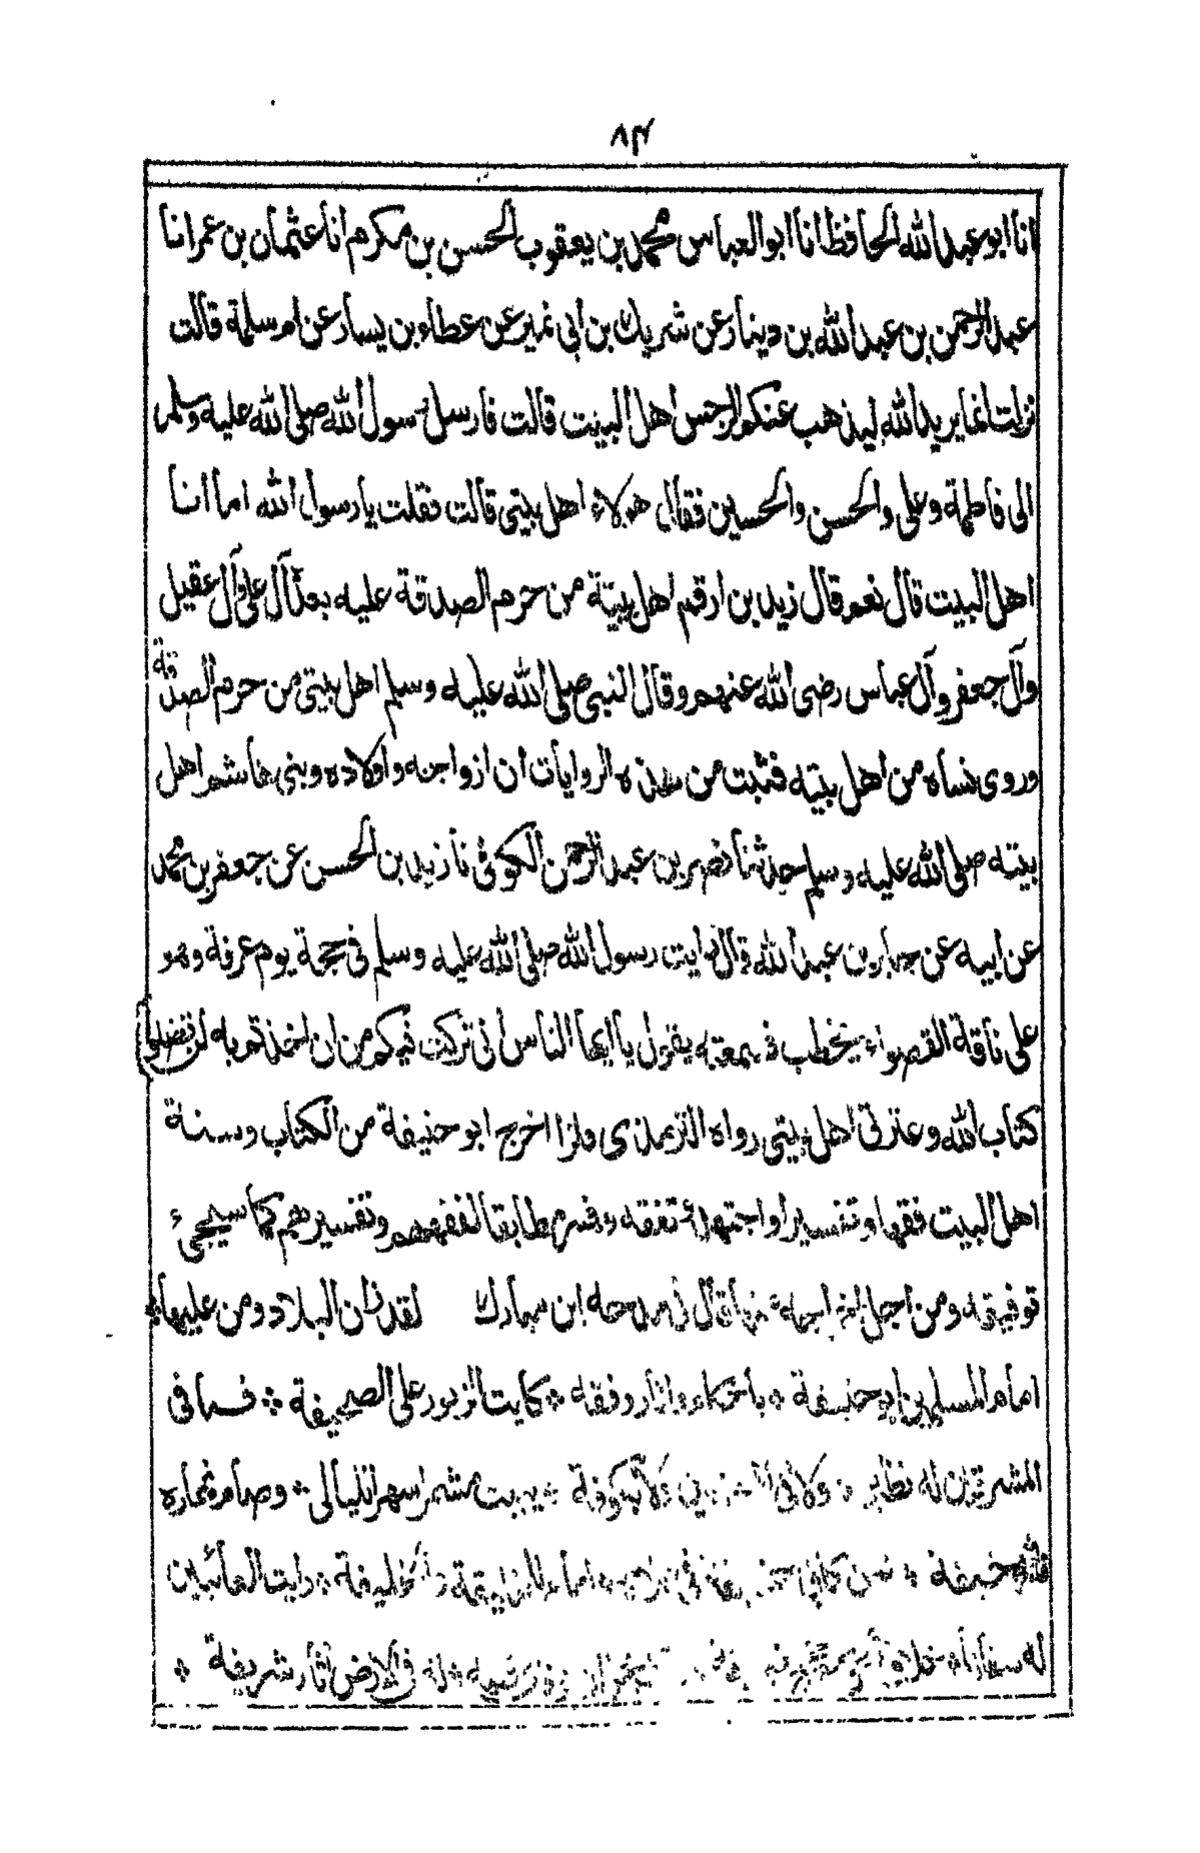 ٨٣
انا ابو عبد الله الحافظ انا ابو العباس محمد بن يعقوب الحسن بن مكرم انا عثمان بن عمر انا
عبد الرحمن بن عبد الله بن دينار عن شريك بن ابي نمير عن عطاء بن يسار عن ام سلمة قالت
نزلت انما يريد الله ليذهب عنكم الرجس اهل البيت قالت فارسل رسول الله صلى الله عليه وسلم
الى فاطمة وعلى والحسن والحسين فقال هولاء اهل بيتى قالت فقلت يا رسول الله اما انا
اهل البيت قال نعم قال زيد بن ارقم اهل بيتة من حرم الصدقة عليه بعدة آل على وآل عقيل
وآل جعفر وآل عباس رضى الله عنهم وقال النبى صلى الله عليه وسلم اهل بيتى من حرم الصدقة
وروى نساه من اهل بيته فثبت من هذه الروايات ان ازواجه واولاده وبنى هاشم اهل
بيته صلى الله عليه وسلم حدثنا نصر بن عبد الرحمن الكوفى نا زيد بن الحسن عن جعفر بن محمد
عن ابيه عن جابر بن عبد الله قال رايت رسول الله صلى الله عليه وسلم فى حجة يوم عرفة وهو
على ناقة القصواء يخطب فسمعته يقول يا ايها الناس انى تركت فيكم من ان اخذتم به لن تضلوا
كتاب الله وعترتى اهل بيتى رواه الترمذى ولذا اخرج ابو حنيفة من الكتاب وسنة
اهل البيت فقها وتفسيرا واجتهد تفقه وفسر مطابقا لفقههم وتفسيرهم كما سيجىء
توفيقه ومن اجل قال فى مدحه ابن مبارك لقد زان البلاد ومن عليها *
امام المسلمين ابو حنيفة * باحكام واثار وفقه * كايت الزبور على الصحيفة * فما فى
المشرقين له نظير * ولا فى ولا بكوفة * يبيت مشمرا سهر الليالى * وصام نهاره
لله خيفة * فمن كابى امام للخليقة والخليفة * رايت العائبين
له سفاها * خلاف له فى الارض اثار شريفة *